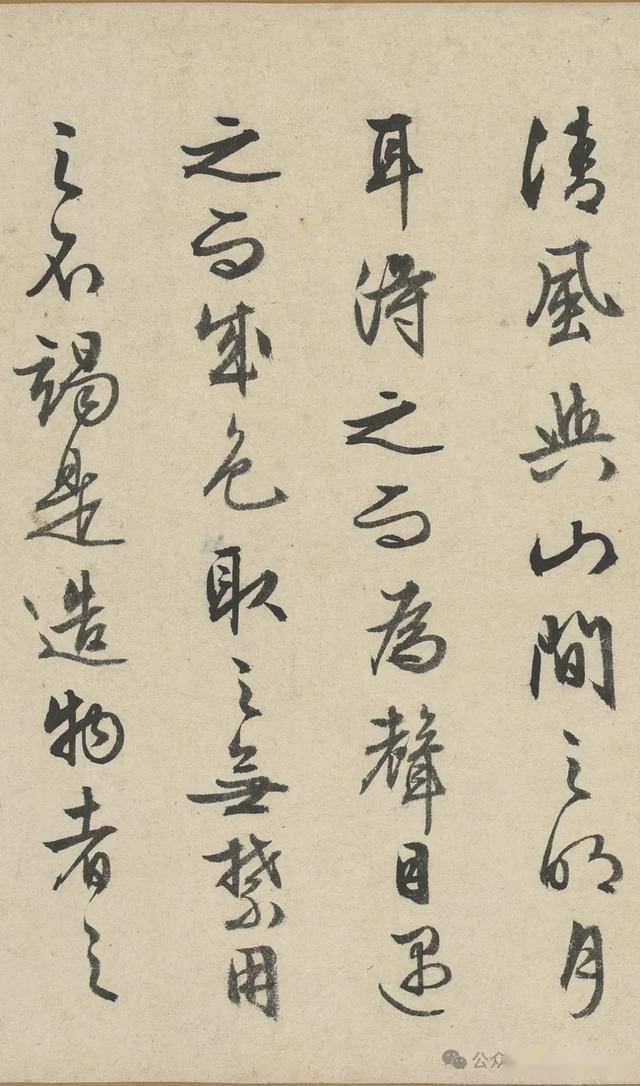 清風與山間之明月
耳得之而為聲目遇
之而成色取之無禁用
之不竭是造物者之
公众